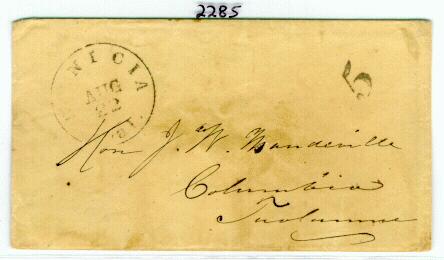 2285
NICIA
AUG
22
Cal.
5
Hon J. W. Mandeville
Columbia
Tuolumne